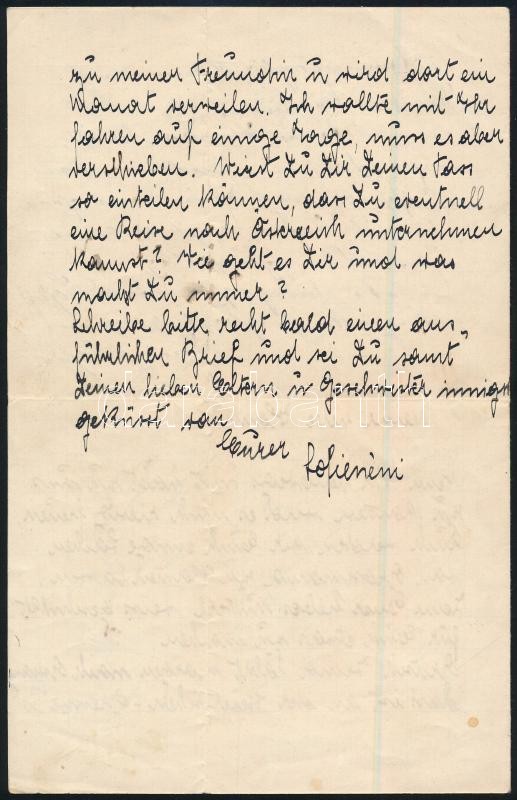 zu meiner Freundin u wird dort ein
Monat verweilen. Ich wollte mit Ihr
fahren auf einige Tage, muss es aber
verschieben. Wirst Du Dir Deinen Pass
so einteilen können, dass Du eventuell
eine Reise nach Österreich unternehmen
kannst? Wie geht es Dir und was
machst Du immer?
Schreibe bitte recht bald einen aus-
führlichen Brief und sei Du samt
Deinen lieben Eltern u Geschwister innigst
geküsst von
Eurer
Sofienéni